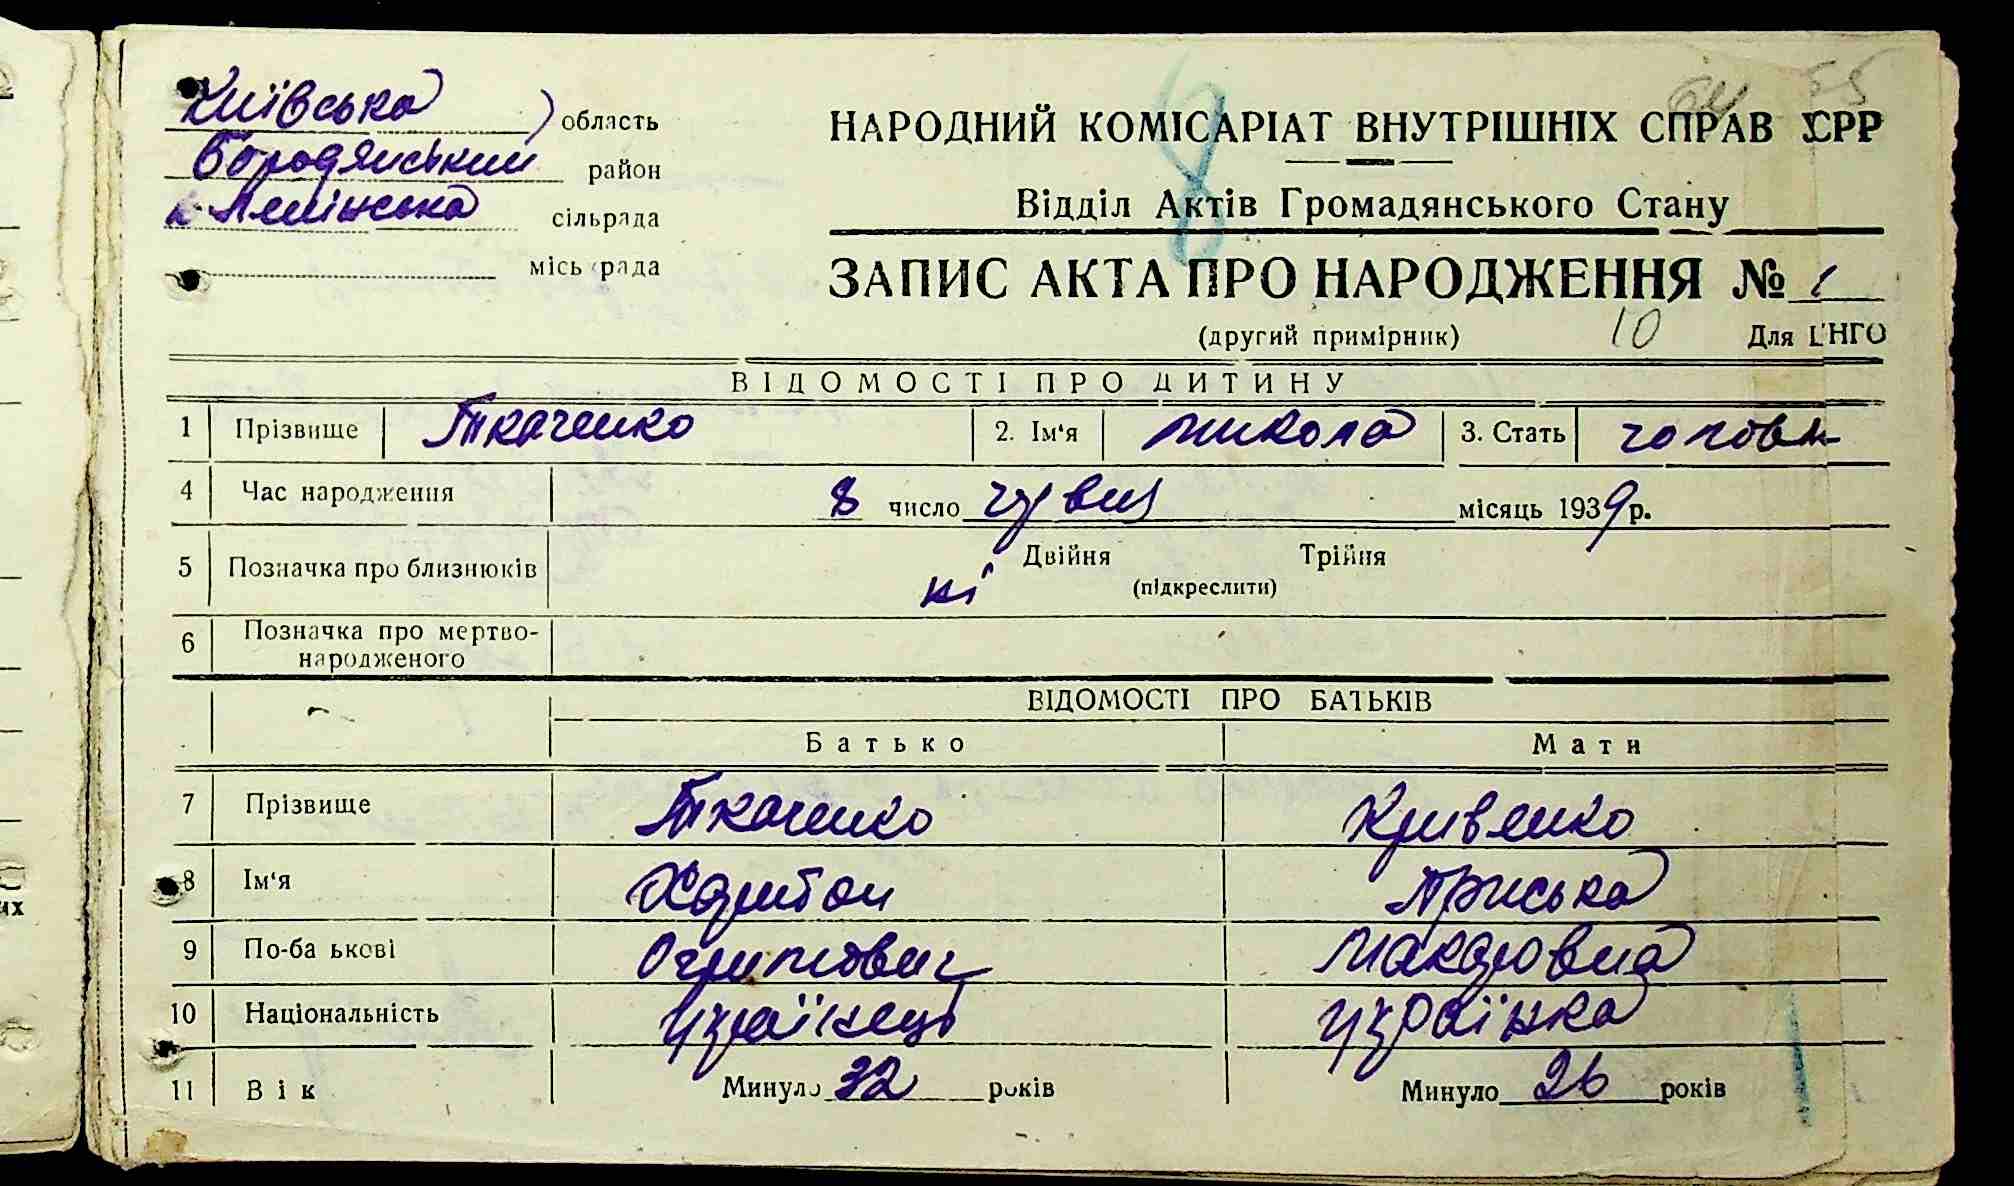 64 55
Київська область
Бородянський район
к-Ленінська сільрада
міськрада
8
НАРОДНИЙ КОМІСАРІАТ ВНУТРІШНІХ СПРАВ УСРР
Відділ Актів Громадянського Стану
ЗАПИС АКТА ПРО НАРОДЖЕННЯ № 1
(другий примірник) 10 Для ЦНГО
ВІДОМОСТІ ПРО ДИТИНУ
1 Прізвище Ткаченко 2. Ім'я Микола 3. Стать чолов
4 Час народження 8 число місяць 1939 р.
5 Позначка про близнюків ні Двійня Трійня
(підкреслити)
6 Позначка про мертво-
народженого
ВІДОМОСТІ ПРО БАТЬКІВ
Батько Мати
7 Прізвище Ткаченко Кривенко
8 Ім'я Харитон Приська
9 По-ба ькові Макаровна
10 Національність українець українка
11 Вік Минуло 32 років Минуло 26 років
их